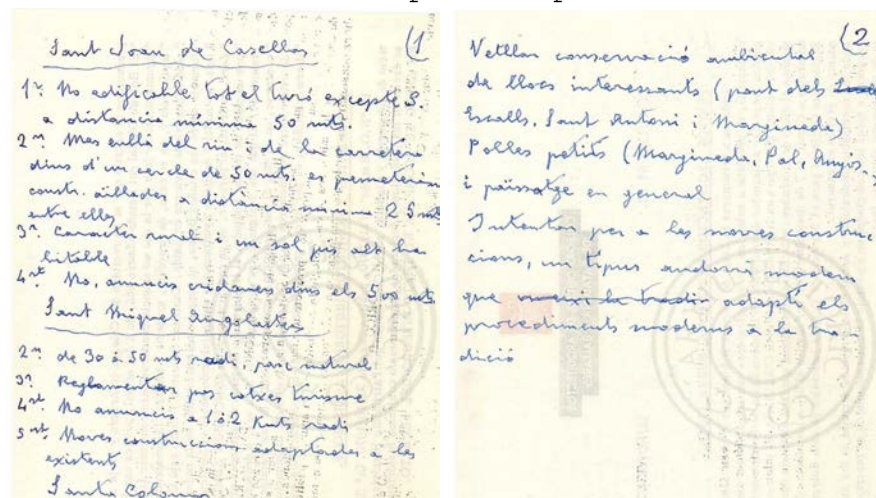 Sant Joan de Casellas
(1
1r. No edificable tot el turó excepte S.
a distancia mínima 50 mts.
2n. Mes enllà del riu i de la carretera
dins d'un cercle de 50 mts. es permeterien
constr. aïllades a distancia mínima 25 mts
entre elles
3r. Caracter rural i un sol pis alt ha
bitable
4rt. No, anuncis cridaners dins els 500 mts
Sant Miquel Engolasters
2n. de 30 à 50 mts radi, parc natural
3r. Reglamentar pas cotxes turisme
4rt. No anuncis a 1 ó 2 Kmts radi
5nt. Noves construccions adaptades a les
existents
Santa Coloma
(2
Vetllar conservació ambiental
de llocs interessants (pont dels
Escalls, Sant Antoni i Margineda)
Pobles petits (Margineda, Pal, Anyós..)
i païssatge en general
Intentar per a les noves construc
cions, un tipus andorrà modern
que adapti els
procediments moderns a la tra-
dició